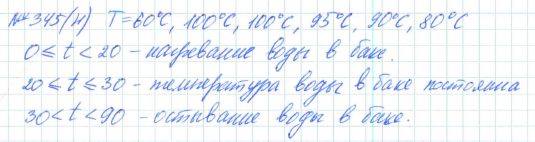 № 345(н) T=60°C, 100°C, 100°C, 95°C, 90°C, 80°C
0 ≤ t < 20 - нагревание воды в баке.
20 ≤ t ≤ 30 - температура воды в баке постоянна
30 < t < 90 - остывание воды в баке.